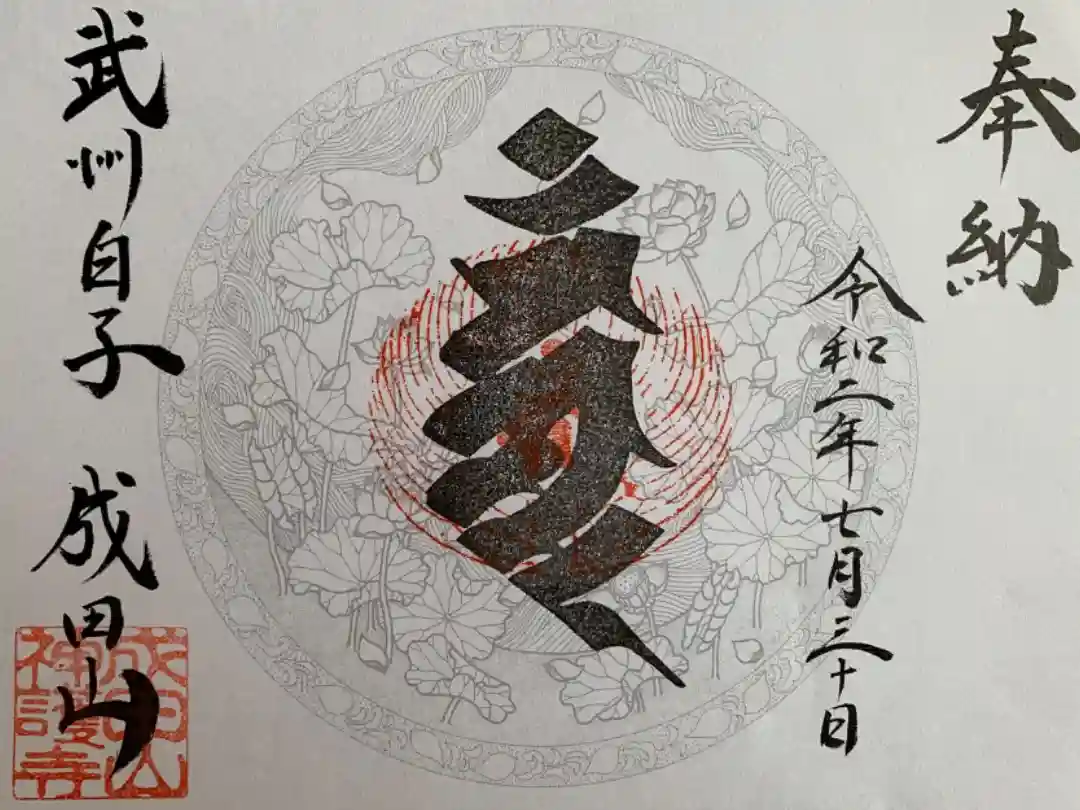 奉納
令和二年七月三十日
武州白子 成田山
成田山
神護寺